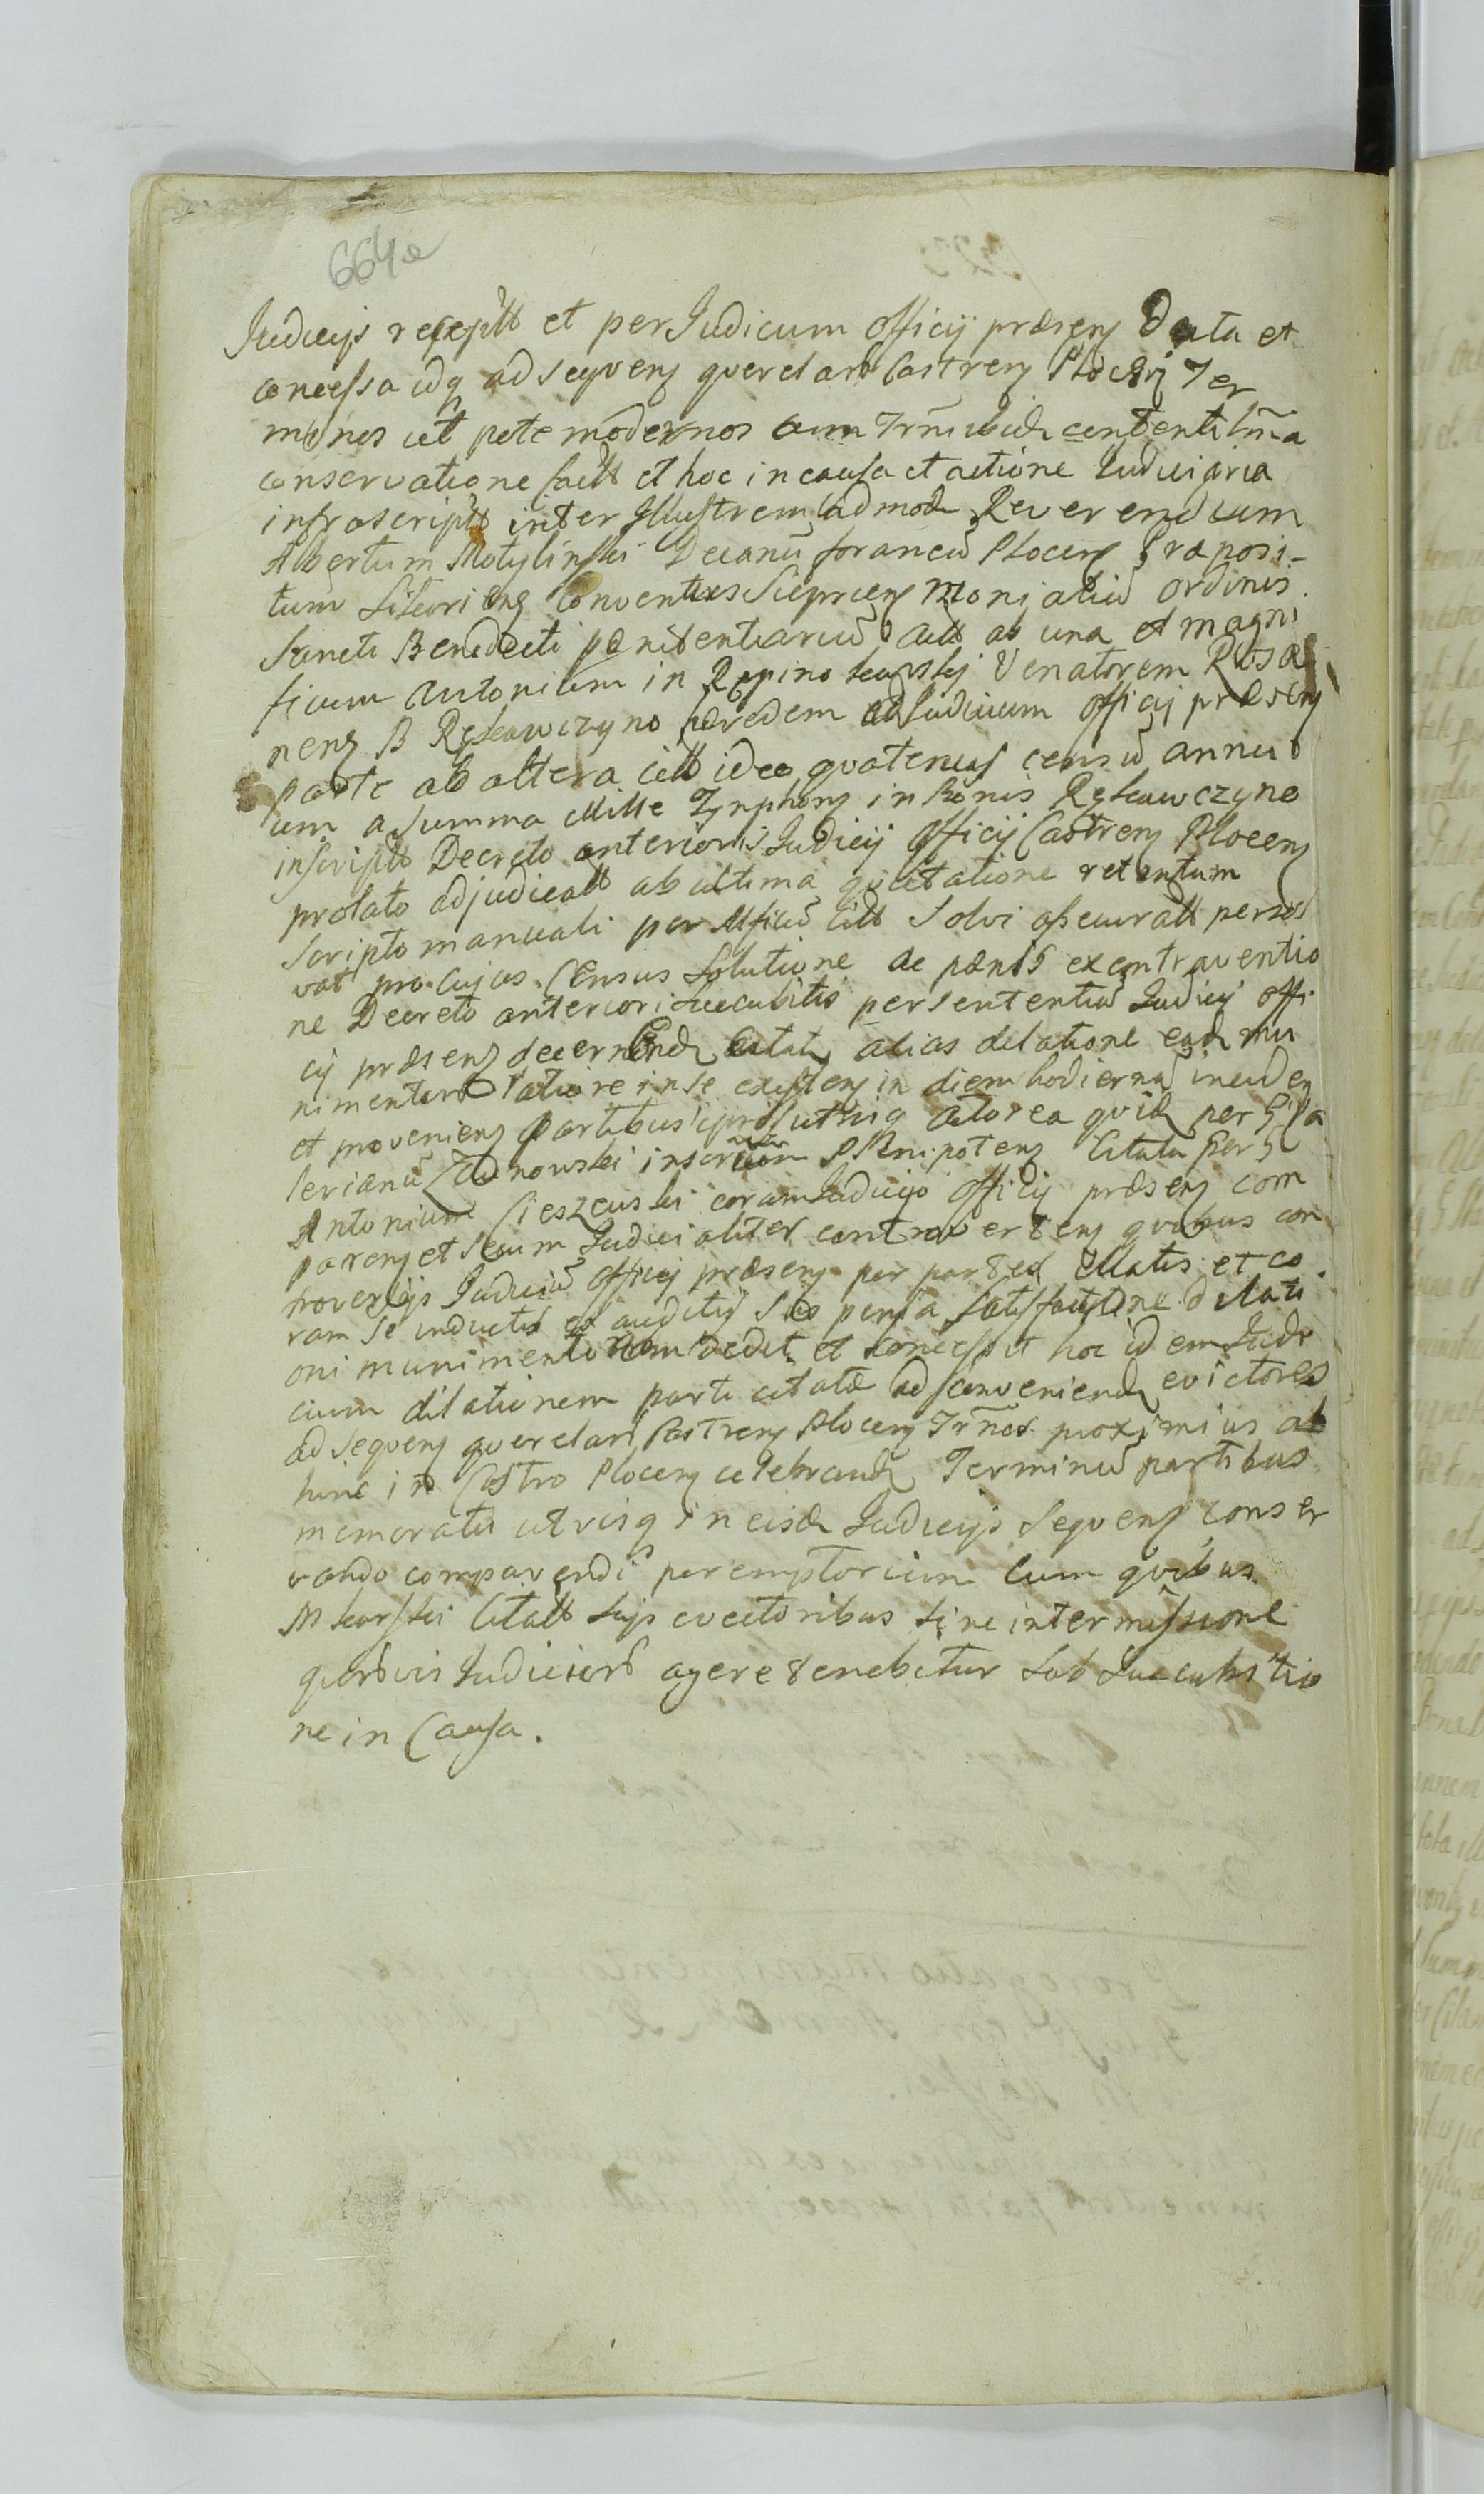 664e
Judicijs receptt et per Judicum officij præseng Data et
concessa idq ad sequeng querelar Castreng Plocen Ter
minos uti pote modernos cum Trmi ibid contenti
conservatione factt et hoc in causa et actione Judiciaria
infrascriptt inter Illustrem admod Reverendum
Albertum Motylinski Decanu foraneu Plocen Præposi-
tum Sikorieng Conventus Sieprceng Monialiu ordinis
Sancti Benedicti penitentiariu Actt ab una et magni
ficum Antonium in Rępino skarski Venatorem Rosa
neng B Rękawczyno hæredem ad Judicium officij præseng
parte ab altera citt ideo quatenus censu annu
um a summa Mille Tynphong in bonis Rękawczyno
inscriptt Decreto anterioris Judicij officij Castreng Ploceng
prolato adjudicatt ab ultima quietatione retentum
scripto manuali per Mficu citt solvi assecuratt persol
vat pro cujus Census Solutione de pænis ex contraventio
ne Decreto anteriori succubitis per sententia Judicij offi
cij præseng decernend citat alias dilatione ead mu
nimentor ratione in se existeng in diem hodierna inciden
et provenieng partibus ipsis utrisq Actorea quid per G Va
lerianu Czarnowski Plenipoteng Citata per G
Antonium Cieszewski coram Judicijo officij præseng com
pareng et secum Judicialiter controverteng quibus con
troversijs Judiciu officij præseng per partes illatis et co
ram se inductis et auditis Suspensa satisfactione dilati
oni munimentorum dedit et concessit hoc idem Judi
cium dilationem parti citatæ ad conveniend evictores
ad sequeng querelar Castreng Ploceng Trnos proximius ab
hinc in Castro Ploceng celebrand Terminu partibus
memoratis utrisq in eisd Judicijs sequeng conser
vando comparendi peremptorium Cum quibus
M skarski Citatt suis evictoribus sine intermissione
quorvis Judicior agere tenebitur sub succubitio
ne in Causa.